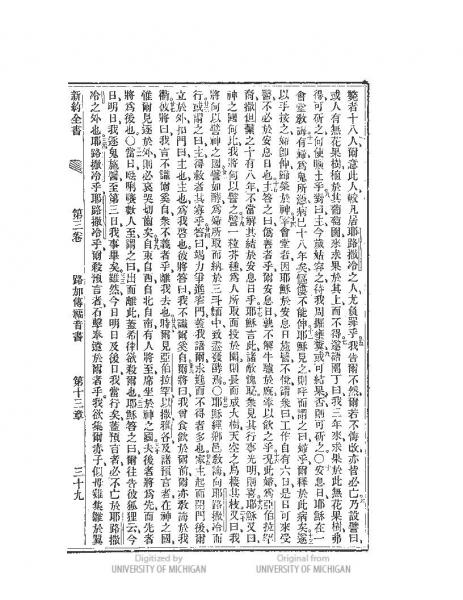 斃者十八人爾意此人較凡居耶路撒冷之人尤負罪乎我告爾不然爾若不悔改亦皆必亡乃設譬曰
或人有無花果樹植於其葡萄園來求果於其上而不得遂語園丁曰我三年來求果於此無花果樹弗
得可斫之何使廢土乎對曰主今歲姑容之待我周掘壅糞或可結果否則可斫之〇安息日耶穌在一
會堂教誨有婦爲鬼所憑病已十八年矣傴僂不能伸耶穌見之則呼而謂之曰婦乎爾釋於此病矣遂
以手按之婦卽伸歸榮於神會堂宰因耶穌於安息日施醫不悅謂衆曰工作自有六日是日可來受
醫不必於安息日也主答之曰僞善者乎爾安息日孰不解牛驢於廐牽以飲之乎況此婦爲亞伯拉罕
裔撒但繫之十有八年不當解其結於安息日乎耶穌言此諸敵愧恥衆見其行事光明則喜耶穌又曰
神之國何比我將何以譬之譬一粒芥種爲人所取而投於園則長而成大樹天空之鳥棲其枝又曰我
將何以譬神之國譬如酵爲婦所取而納於三斗麵中致盡發酵焉〇耶穌經鄉邑教誨向耶路撒冷而
行或謂之曰主得救者其寡乎答曰竭力爭進窄門蓋我語爾求進而不得者多也家主起而閉門後爾
立於外扣門曰主也主也爲我啓也彼將答曰我不識爾奚自爾將曰我曾食飲於爾前爾亦教誨於我
衢彼將曰我言不識爾奚自衆不義者乎離我去也時爾見亞伯拉罕以撒雅各及諸預言者在神之國
惟爾見逐於外則必哀哭切齒矣自東自西自北自南有人將至席坐於神之國夫後者將爲先而先者
將爲後也〇當日數人至謂之曰出而離此蓋希律欲殺爾也耶穌答之曰爾往告彼狐狸云今
日明日我逐鬼施醫至第三日我事畢矣雖然今日明日及後日我當行矣蓋預言者必不亡於耶路撒
冷之外也耶路撒冷乎耶路撒冷乎爾殺預言者石擊奉遣於爾者乎我欲集爾赤子似母雞集雛於翼
新約全書 第三卷 路加傳福音書 第十三章 三十九
Digitized by
UNIVERSITY OF MICHIGAN
Original from
UNIVERSITY OF MICHIGAN